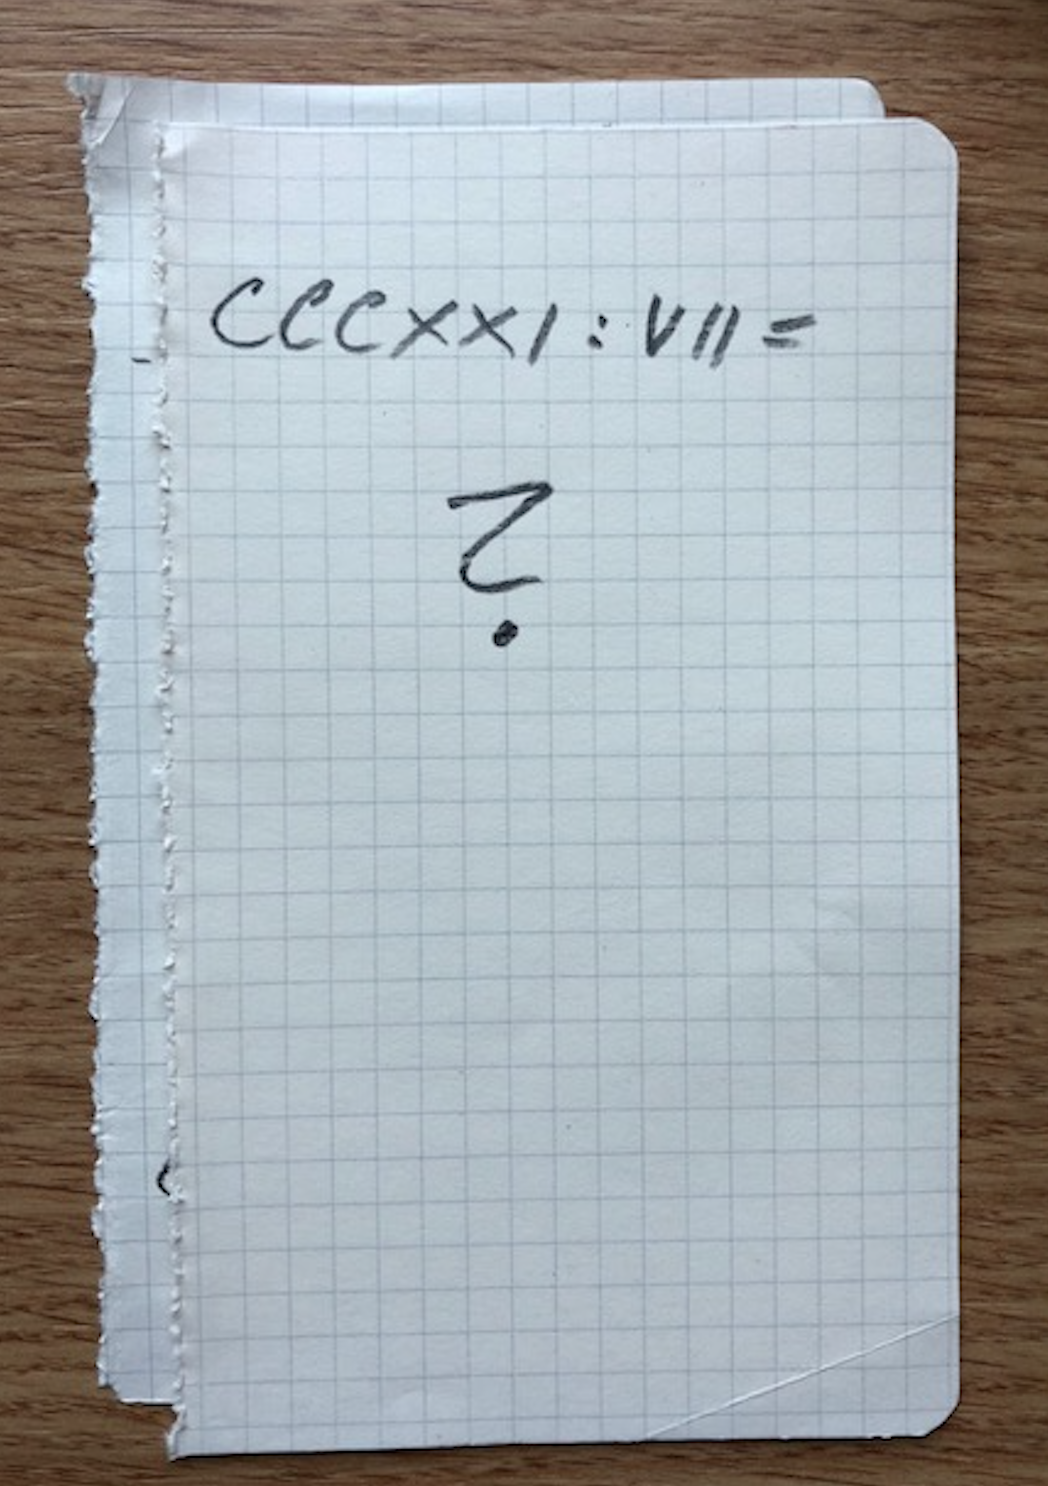 CCCXXI : VII =
?